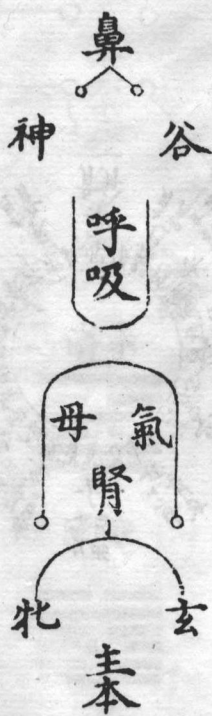 鼻
谷神
呼吸
氣母
腎
玄牝
主本